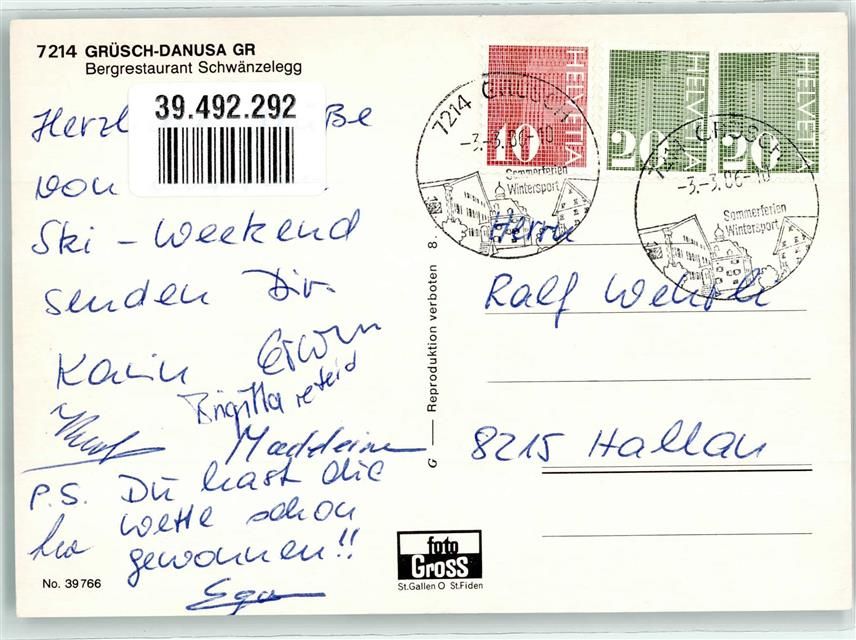 7214 GRÜSCH-DANUSA GR
Bergrestaurant Schwänzelegg
39.492.292
Herzl ße
von
Ski - Weekend
senden Dir.
Karin Erwin
Brigitta
Madeleine
P.S. Du hast die
Wette schon
gewonnen!!
No. 39766
G — Reproduktion verboten 8.
foto
Gross
St.Gallen O St.Fiden
HELVETIA
10
HELVETIA
20
HELVETIA
20
7214 GRÜSCH
-3.-3.86-10
Sommerferien
Wintersport
7214 GRÜSCH
-3.-3.86-10
Sommerferien
Wintersport
Herrn
Ralf
8215 Hallau